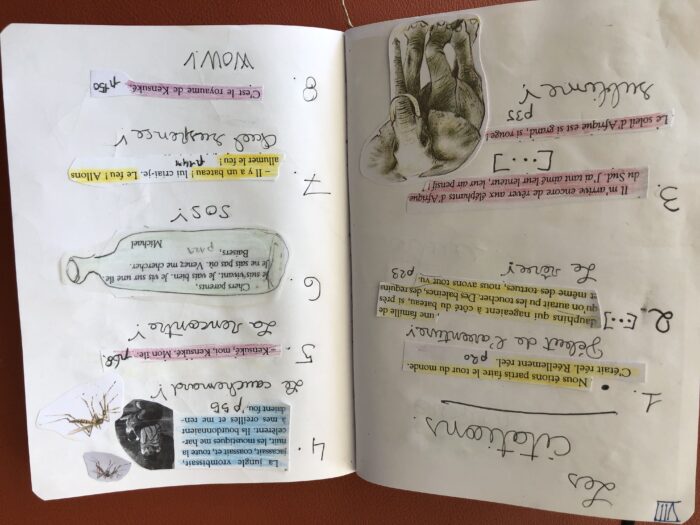 VIII
Les
Citations
1. • Nous étions partis faire le tour du monde.
C'était réel. Réellement réel. p20
Début de l'aventure !
2. [...] une famille de
dauphins qui nageaient à côté du bateau, si près
qu'on aurait pu les toucher. Des baleines, des requins
et même des tortues, nous avons tout vu. p23
Le rêve !
3. Il m'arrive encore de rêver aux éléphants d'Afrique
du Sud. J'ai tant aimé leur lenteur, leur air pensif !
[...]
Le soleil d'Afrique est si grand, si rouge !
p35
sublime !
4. La jungle vrombissait,
jacassait, coassait, et, toute la
nuit, les moustiques me har-
celèrent. Ils bourdonnaient
à mes oreilles et me ren-
daient fou. p55
Le cauchemard !
5. – Kensuké, moi, Kensuké. Mon île. p68
La rencontre !
6. Chers parents,
Je suis vivant. Je vais bien. Je vis sur une île
Je ne sais pas où. Venez me chercher.
Baisers,
Michael
SOS !
7. – Il y a un bateau ! lui criai-je. Le feu ! Allons
allumer le feu !
Quel suspence !
8. C'est le royaume de Kensuké. p150
WOW !